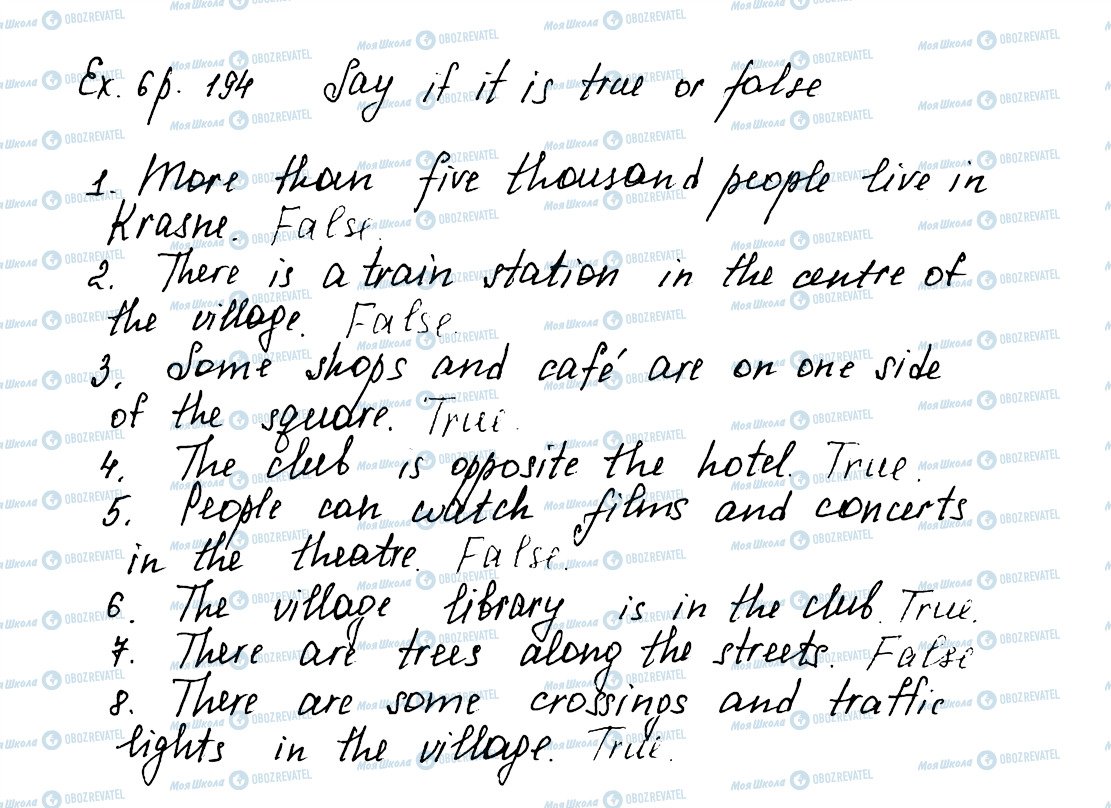 Ex. 6 p. 194 Say if it is true or false
1. More than five thousand people live in
Krasne. False.
2. There is a train station in the centre of
the village. False.
3. Some shops and café are on one side
of the square. True.
4. The club is opposite the hotel. True.
5. People can watch films and concerts
in the theatre. False.
6. The village library is in the club. True.
7. There are trees along the streets. False
8. There are some crossings and traffic
lights in the village. True.